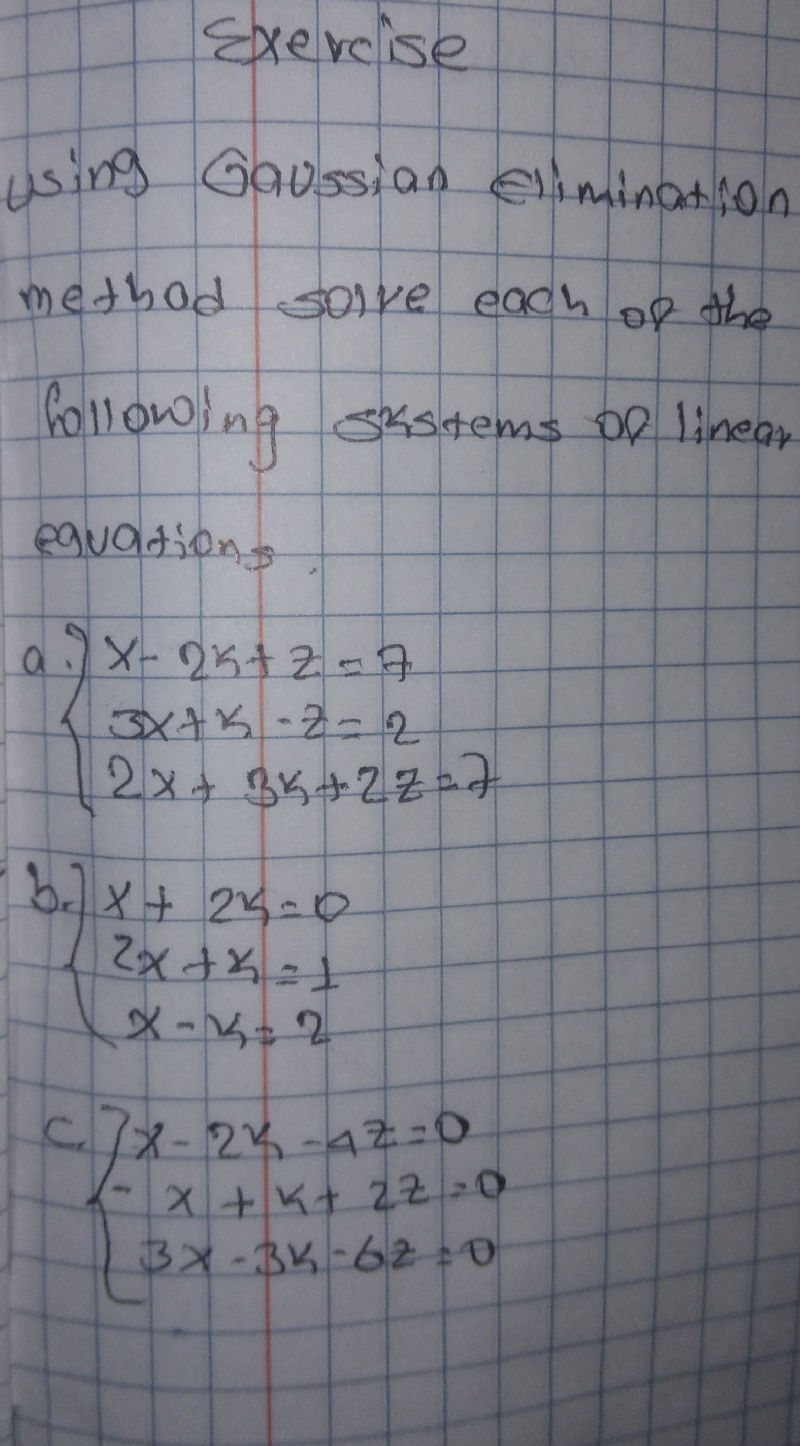 Exercise
using Gaussian Elimination
method solve each of the
following systems of linear
equations.
a. { x - 2y + z = 7
3x + y - z = 2
2x + 3y + 2z = 7
b. { x + 2y = 0
2x + y = 1
x - y = 2
c. { x - 2y - 4z = 0
- x + y + 2z = 0
3x - 3y - 6z = 0